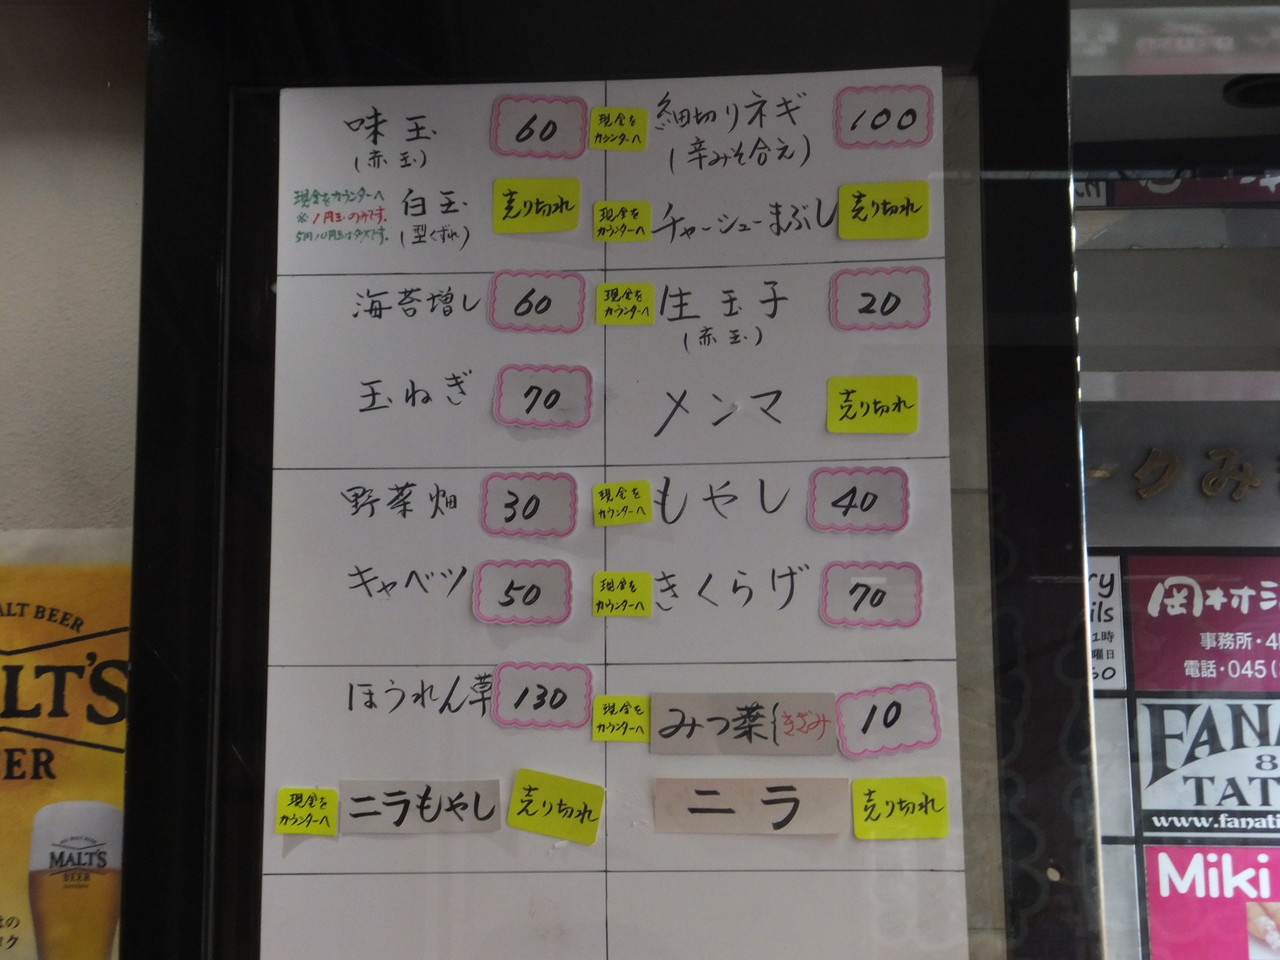 味玉 60
(赤玉)
現金をカウンターへ
※1円玉のみです。
5円10円玉はダメです。
白玉 売り切れ
(型くずれ)
海苔増し 60
玉ねぎ 70
野菜畑 30
キャベツ 50
ほうれん草 130
現金を
カウンターへ
ニラもやし 売り切れ
現金を
カウンターへ
細切りネギ 100
(辛みそ合え)
現金を
カウンターへ
チャーシューまぶし 売り切れ
現金を
カウンターへ
生玉子 20
(赤玉)
メンマ 売り切れ
現金を
カウンターへ
もやし 40
現金を
カウンターへ
きくらげ 70
現金を
カウンターへ
みつ葉 きざみ 10
ニラ 売り切れ
ALT BEER
LT'S
ER
MALT'S
BEER
ークみ
ry
ils
1時
曜日
60
岡本オ
事務所・4
電話・045(
FANA
8
TAT
www.fanati
Miki